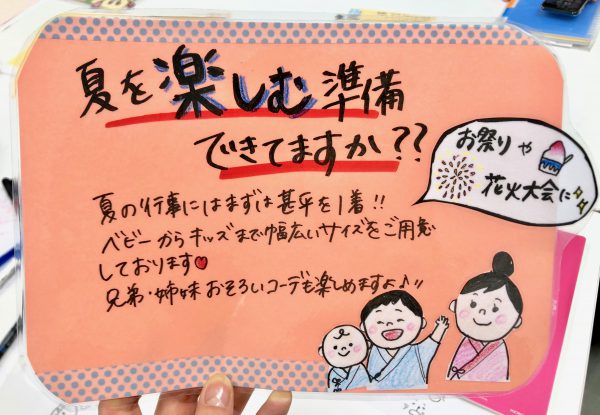 夏を楽しむ準備
できてますか??
お祭りや
花火大会に
夏の行事にはまずは甚平を1着!!
ベビーからキッズまで幅広いサイズをご用意
しております
兄弟・姉妹おそろいコーデも楽しめますよ♪〃